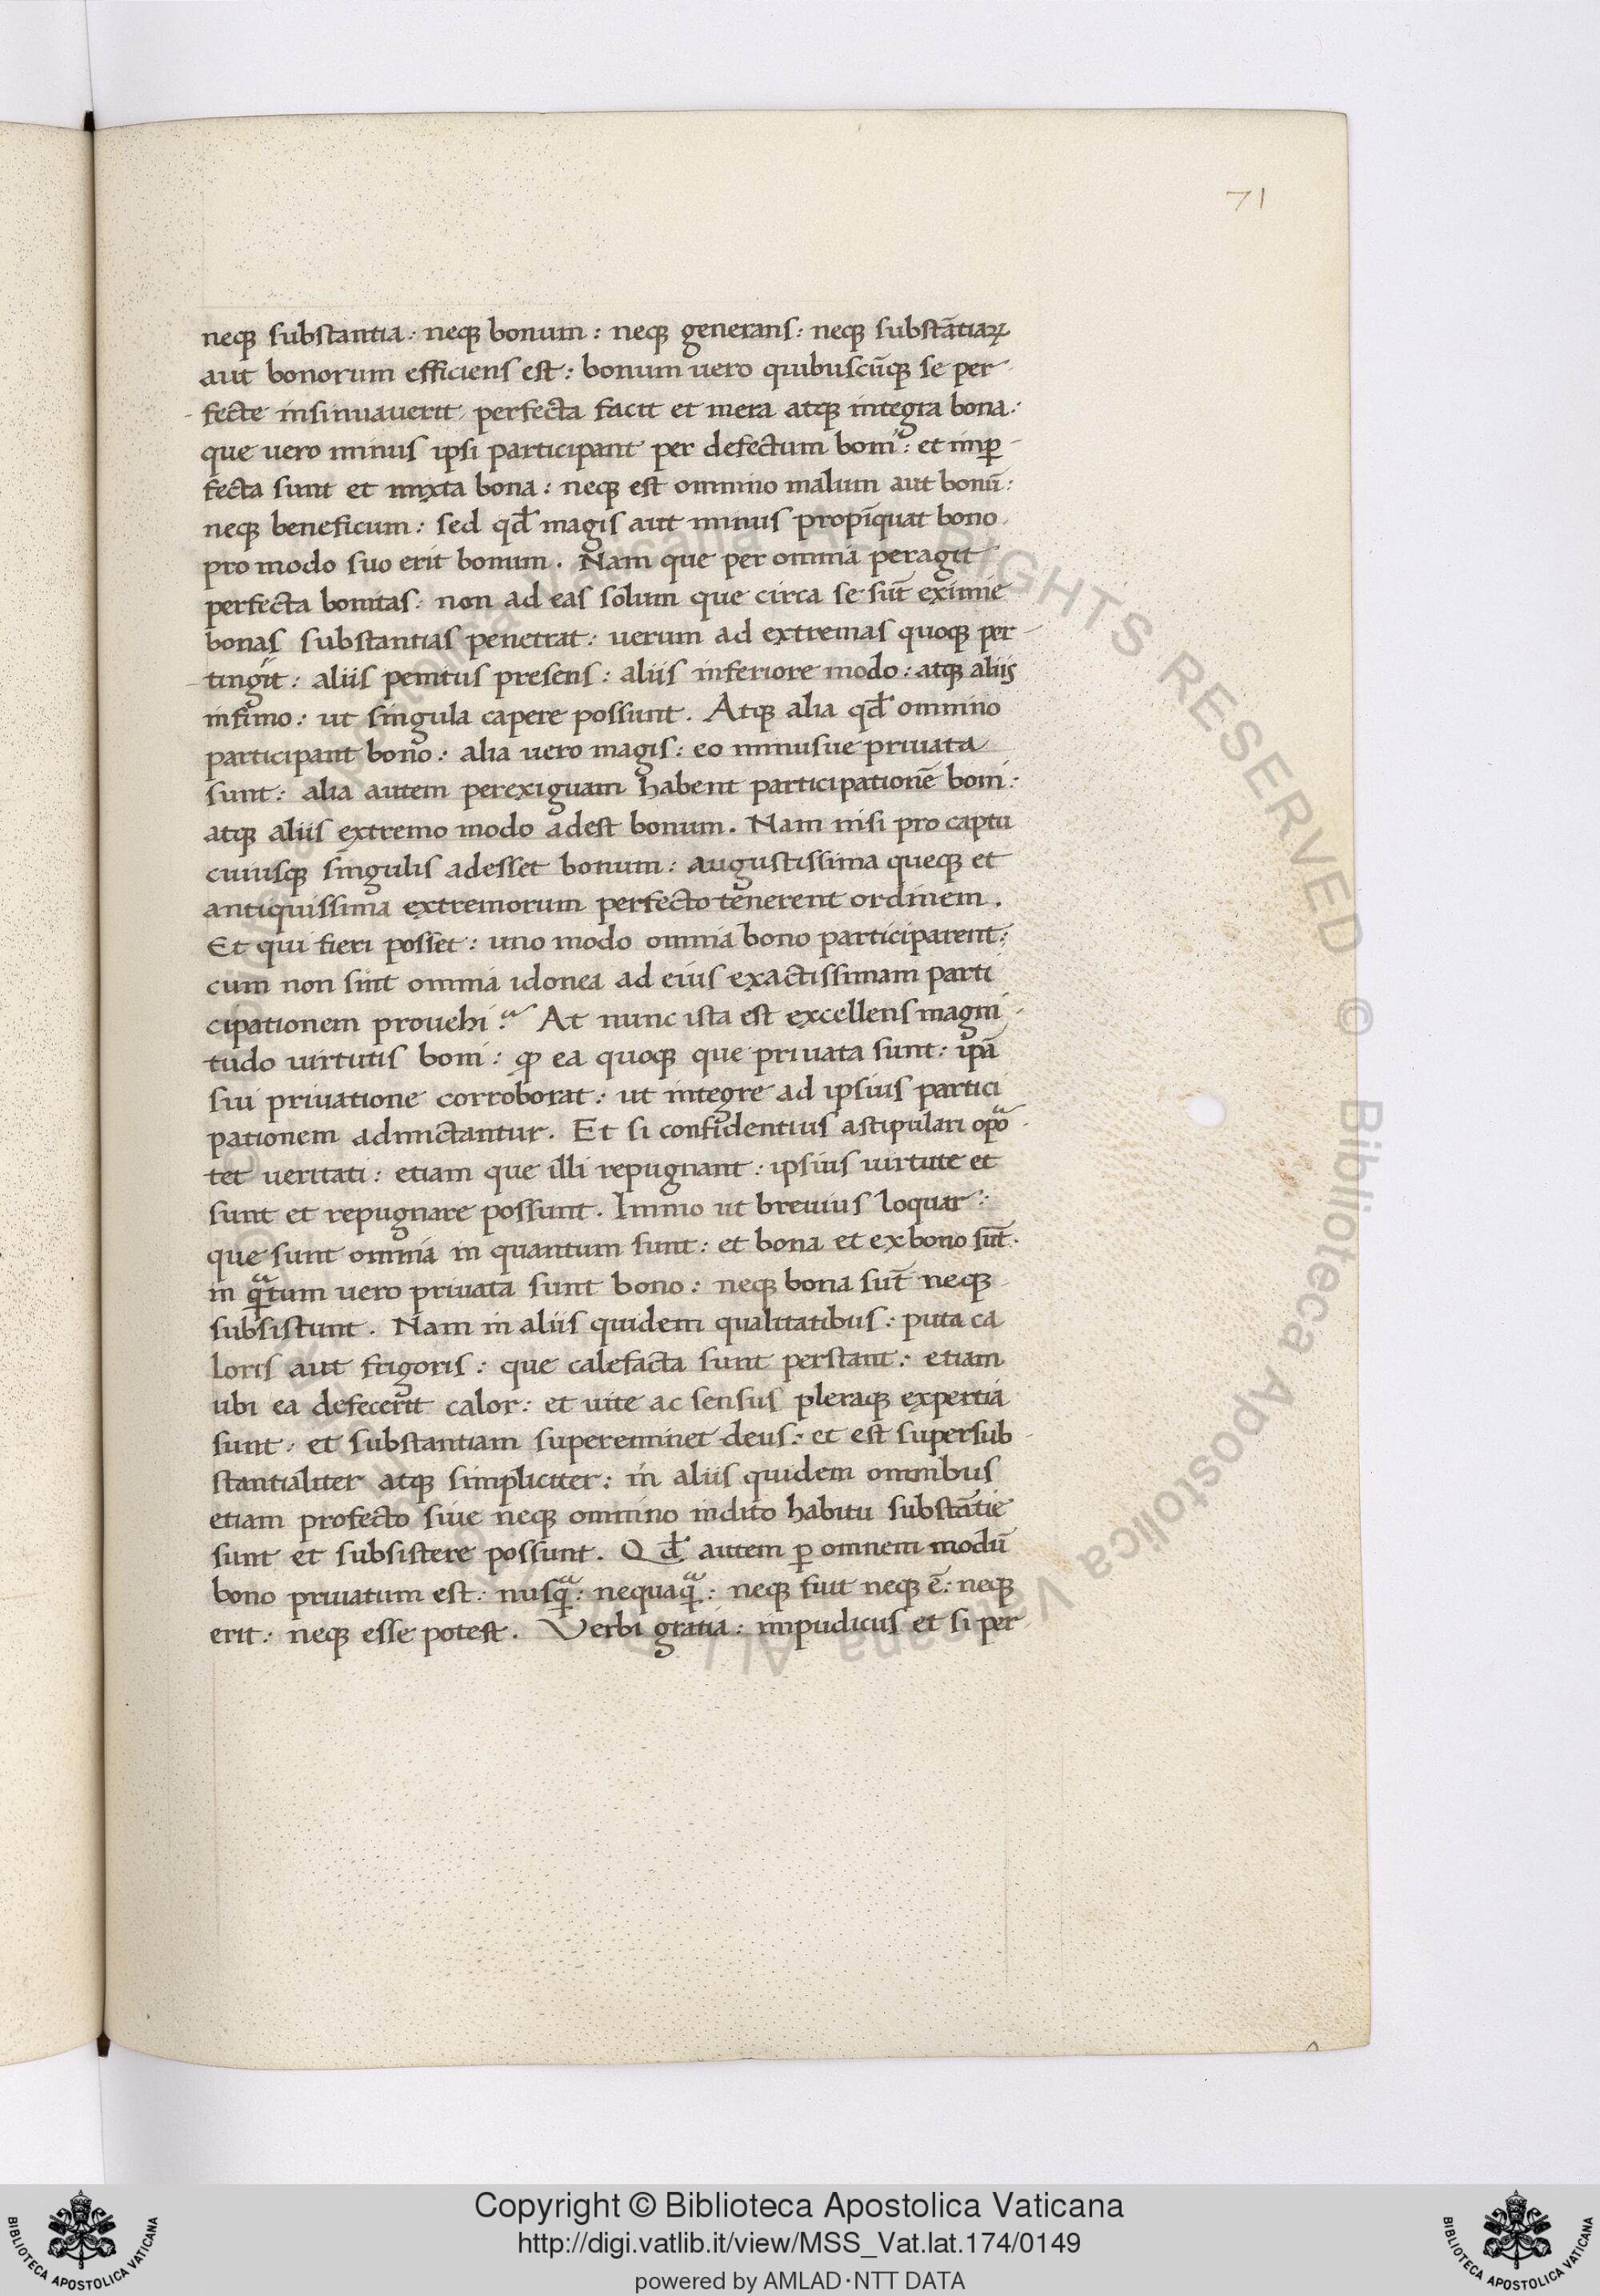 71
neqꝫ substantia: neqꝫ bonum: neqꝫ generans: neqꝫ substātiaꝝ
aut bonorum efficiens est: bonum uero quibuscūqꝫ se per
fecte insinuauerit perfecta facit et mera atqꝫ integra bona:
que uero minus ipsi participant per defectum boni: et imꝑ
fecta sunt et mixta bona: neqꝫ est omnino malum aut bonū:
neqꝫ beneficum: sed qđ magis aut minus propīquat bono
pro modo suo erit bonum. Nam que per omnia peragit
perfecta bonitas: non ad eas solum que circa se sūt eximie
bonas substantias penetrat: uerum ad extremas quoqꝫ per
tingit: aliis penitus presens: aliis inferiore modo: atqꝫ aliis
infimo: ut singula capere possunt. Atqꝫ alia qđ omnino
participant bono: alia uero magis: eo minusue priuata
sunt: alia autem perexiguam habent participationē boni:
atqꝫ aliis extremo modo adest bonum. Nam nisi pro captu
cuiusqꝫ singulis adesset bonum: augustissima queqꝫ et
antiquissima extremorum perfecto tenerent ordinem.
Et qui fieri posset: uno modo omnia bono participarent:
cum non sint omnia idonea ad eius exactissimam parti
cipationem prouehi? At nunc ista est excellens magni
tudo uirtutis boni: ꝙ ea quoqꝫ que priuata sunt: ipā
sui priuatione corroborat: ut integre ad ipsius partici
pationem admictantur. Et si confidentius astipulari opoͣ
tet ueritati: etiam que illi repugnant: ipsius uirtute et
sunt et repugnare possunt. Immo ut breuius loquar:
que sunt omnia in quantum sunt: et bona et ex bono sūt.
in qͣtum uero priuata sunt bono: neqꝫ bona sūt neqꝫ
subsistunt. Nam in aliis quidem qualitatibus: puta ca
loris aut frigoris: que calefacta sunt perstant: etiam
ubi ea defecerit calor: et uite ac sensus pleraqꝫ expertia
sunt: et substantiam supereminet deus: et est supersub
stantialiter atqꝫ simpliciter: in aliis quidem omnibus
etiam profecto siue neqꝫ omnino indito habitu substātie
sunt et subsistere possunt. Qđ autem ꝑ omnem modū
bono priuatum est: nusqͣ: nequaqͣ: neqꝫ fuit neqꝫ ē: neqꝫ
erit: neqꝫ esse potest. Verbi gratia: impudicus et si per
Copyright © Biblioteca Apostolica Vaticana
http://digi.vatlib.it/view/MSS_Vat.lat.174/0149
powered by AMLAD·NTT DATA